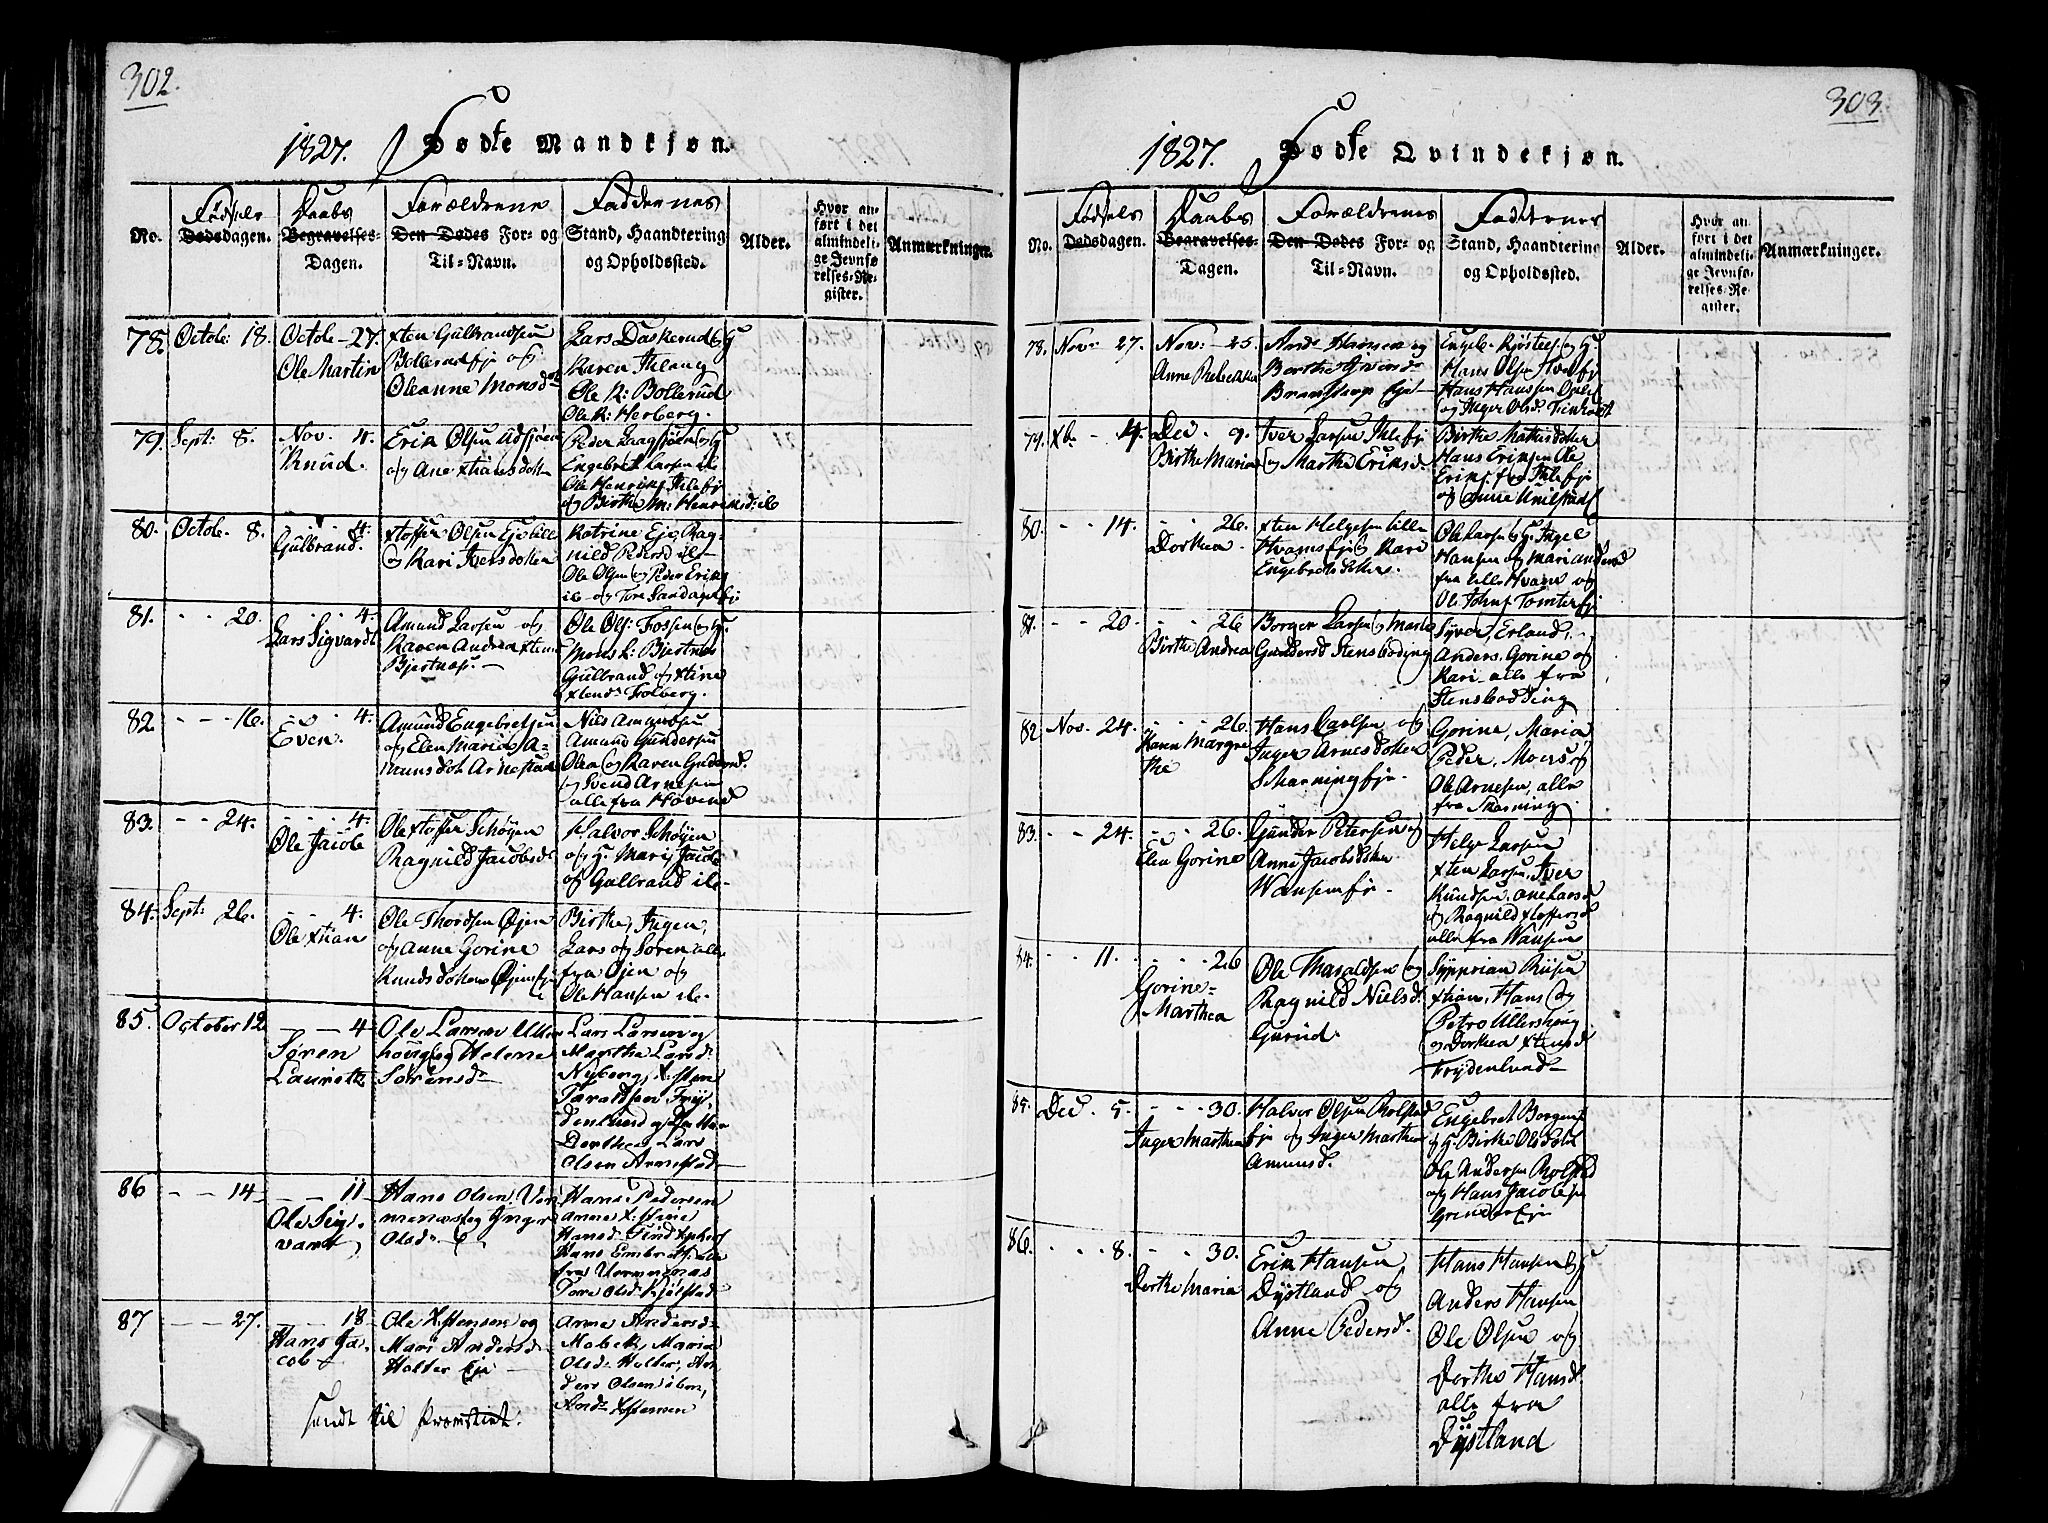 302.
1827. Fødte Mandkjøn.
No.
Fødsels Dødsdagen.
Daabs Begravelses-Dagen.
Forældrene Den Dødes For- og Til-Navn.
Faddernes Stand, Haandtering og Opholdssted.
Alder.
Hvor anført i det almindelige Jevnførelses-Register.
Anmærkninger.
78. Octobr: 18. Octobr - 27. Ole Martin
xsten Gulbrandsen
Bollerudej og
Oleanne Monsd
Lars Daskerud og H
Karen Ihlang
Ole K: Bollerud
Ole K: Herberg.
79. Sept: 8. Nov. 4. Knud.
Erik Olsen
og Ane xstiansdotter
Engebret Larsen ib
Ole Henriks Ihleej
og Birthe M: Henriksd: ib
80. Octobr. 8. - - 4. Gulbrand.
xstoffer Olsen Eje
og Kari Iversdotter
Katrine Eje, Rag-
nild Pedersd ib-
Ole Olsen og Peder Eriks
ib- og Tore Sandagerej
81. - - 20. - - 4. Lars Sigvardt
Amund Larsen og
Karen Andrea xstens
Bjertnæs. -
Ole Ols: Fossen og H.
Mons L: Bjertnæs
Gulbrand og xstine
xstensd Folberg.
82. - - 16. - - 4. Even.
Amund Engebretsen
og Elen Maria A-
munsdot Arnestad
Nils Amundsen
Amund Gundersen
Olea og Karen Gundersd.
og Svend Arnesen
alle fra Hovind
83. - - 24. - - 4. Ole Jacob
Ole xstoffer Schøyen
Ragnild Jacobsd
Halvor Schøyen
og H. Mari Jacobs
og Gulbrand ib-
84. Sept: 26. - - 4. Ole xstian
Ole Thordsen Øjen
og Anne Gorine
Knudsdotter Øjenej
Birthe, Ingen,
Lars og Søren alle
fra Øjen og
Ole Hansen ib-
85. October 12 - - 4 Søren Lauritz
Ole Larsen Ullers
houg og Helene
Sørensd-
Lars Larsen og
Martha Larsd
Nyberg, xsten
Taraldsen Fryd
denlund og
Dorthea, Lars
Olsen Arnestad
86 - - 14 - - 11 Ole Sigvart
Hans Olsen Ver-
menæs og Inger
Olsd-
Hans Pedersen
Anne
Hansd
Hans Embrets. alle
fra Vermenæs
Tore Olsd: Kjølstad
87 - - 27. - - 18 Hans Jacob
Ole xstensen og
Mari Andersd-
Holter Eje
Anne Andersd-
Mobek, Maria
Olsd Holter, An-
ders Olsen ibm,
And: xstensen
sendt til
303.
1827. Fødte Qvindekjøn.
No.
Fødsels Dødsdagen.
Daabs Begravelses-Dagen.
Forældrenes Den Dødes For- og Til-Navn.
Faddernes Stand, Haandtering og Opholdssted.
Alder.
Hvor anført i det almindelige Jevnførelses-Register.
Anmærkninger.
78. Nov: 27. Nov: - 25. Anne Rebekka
And: Hansen og
Berthe Iversd
Engebr. Kjøstels og H
Hans Olsen
Hans Hanssen
og Inger Olsd.
79. Xb. - 4. Dec - 9. Birthe Maria
Iver Larsen Ihleej
og Marthe Eriksd.
Birthe Mathisdotter
Hans Eriksen Ole
Eriks. fra Ihleej
og Anne
80. - - 14. - - 26. Dorthea.
xsten Helgesen lille
Hvamsej og Kari
Engebretsdotter.
Ole Larsen og H. Ingel
Hansen og Mari Andersd
fra lille Hvam og
Ole Johns Tomterej
81. - - 20. - - 26 Birthe Andrea
Borger Larsen og Marie
Gundersd Stensbøding
Syver, Erland,
Anders, Gorine og
Kari alle fra
Stensbødding
82 Nov. 24. - - 26. Hanne Margrethe
Hans Carlsen og
Inger Arnesdotter
Skarningej.
Gorine, Maria
Peder, Moens og
Ole Arnesen, alle
fra Skarning
83. - - 24. - - 26. Elen Gorine
Gunder Petersen og
Anne Jacobsdotter
Wansemej.
Helge Larsen
xsten Larsen, Iver
Knudsen, Ane Larsd
og Ragnild xstoffersd
alle fra Wansem
84. - - 11. - - 26 Gorine Marthea
Ole Tharaldsen og
Ragnild Nielsd.
Gurud.
Sypprian Riisen
xstian, Hans og
Petro Ullershoug
og Dorthea xstensd
Frydenlund-
85. Dec. 5. - - 30. Inger Marthea
Halvor Olsen Rolstad
ej og Inger Marthea
Amunsd.
Engebret Borgens
og H. Birthe Olsdotter
Ole Andersen Rolstad
og Hans Jacobsen
Grinder Eje
86. - - 8. - - 30. Dorthe Maria
Erik Hansen
Dystland og
Anne Pedersd.
Hans Hansen og H
Anders Hansen
Ole Olsen og
Dorthe Hansd
alle fra
Dystland